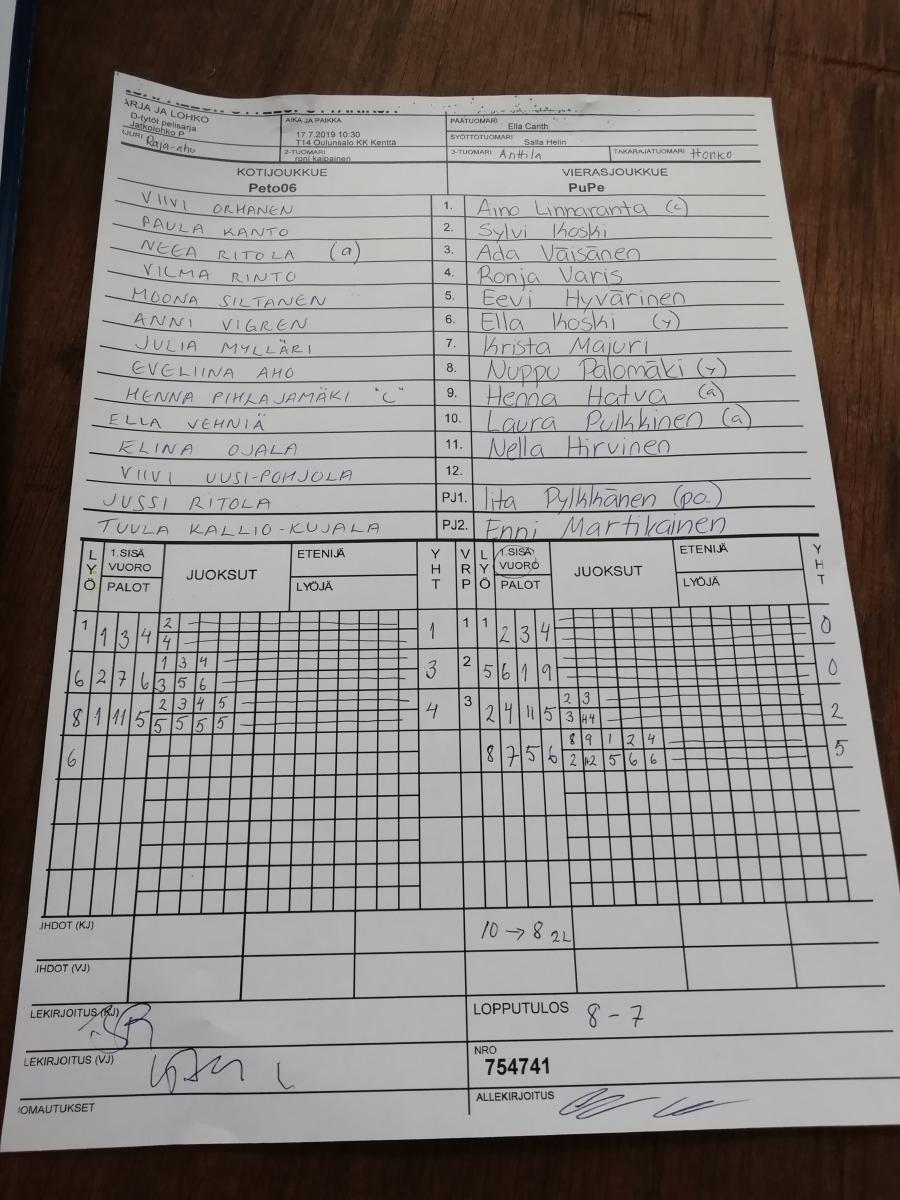 ARJA JA LOHKO
D-tytöt pelisarja
Jatkolohko P
AIKA JA PAIKKA
17.7.2019 10:30
T14 Oulunsalo KK Kenttä
PÄÄTUOMARI Ella Canth
SYÖTTÖTUOMARI Salla Helin
Raja-aho
2-TUOMARI
roni kaipainen
3-TUOMARI Anttila
TAKARAJATUOMARI Honko
KOTIJOUKKUE VIERASJOUKKUE
Peto06 PuPe
VIIVI ORHANEN 1. Aino Linnaranta (c)
PAULA KANTO 2. Sylvi Koski
NEEA RITOLA (a) 3. Ada Väisänen
VILMA RINTO 4. Ronja Varis
MOONA SILTANEN 5. Eevi Hyvärinen
ANNI VIGREN 6. Ella Koski (y)
JULIA MYLLÄRI 7. Krista Majuri
EVELIINA AHO 8. Nuppu Palomäki (y)
HENNA PIHLAJAMÄKI "C" 9. Henna Hatva (a)
ELLA VEHNIÄ 10. Laura Pulkkinen (a)
ELINA OJALA 11. Nella Hirvinen
VIIVI UUSI-POHJOLA 12.
JUSSI RITOLA PJ1. Iita Pylkkänen (po.)
TUULA KALLIO-KUJALA PJ2. Enni Martikainen
LYÖ 1.SISÄ VUORO PALOT JUOKSUT ETENIJÄ LYÖJÄ YHT VRP LYÖ 1.SISÄ VUORO PALOT JUOKSUT ETENIJÄ LYÖJÄ YHT
1 1 3 4 2 1 1 1 2 3 4 0
4
6 2 7 6 1 3 4 3 2 5 6 1 9 0
3 5 6
8 1 11 5 2 3 4 5 4 3 2 4 11 5 2 3 2
5 5 5 5 3
6 8 7 5 6 8 9 1 2 4 5
2 5 6 6
IHDOT (KJ) 10 → 8 2L
IHDOT (VJ)
LEKIRJOITUS (KJ)
LOPPUTULOS 8 - 7
LEKIRJOITUS (VJ)
NRO
754741
OMAUTUKSET
ALLEKIRJOITUS